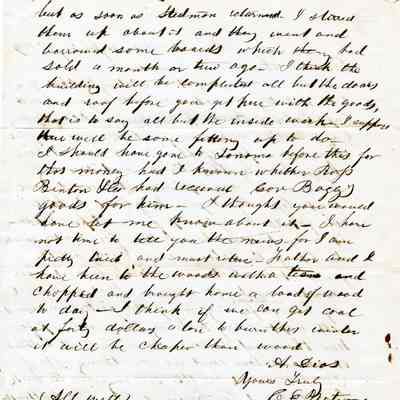 but as soon as Stedman returned. I stired
them up about it and they went and
borrowed some boards which they had
sold a month or two ago - I think the
building will be completed all but the doors
and roof before you get here with the goods,
that is to say all but the inside work - I suppose
there will be some fitting up to do -
I should have gone to Sonoma before this for
this money had I known whether Ross
Benton & Co had received Gov Boggs
goods for him - I thought you would
have let me know about it - I have
not time to tell you the news for I am
pretty tired and must retire - Father and I
have been to the woods with a team and
chopped and brought home a load of wood
to day - I think if we can get coal
at forty dollars a ton to burn this winter
it will be cheaper than wood
A Dios
Yours Truly
C. C.
(All well)